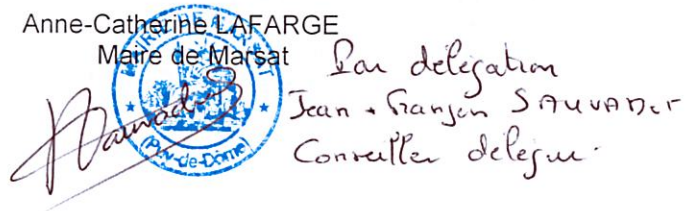 Anne-Catherine LAFARGE
Maire de Marsat
MAIRIE DE MARSAT
(Puy-de-Dôme)
Par délégation
Jean-François SAUVADET
Conseiller délégué.